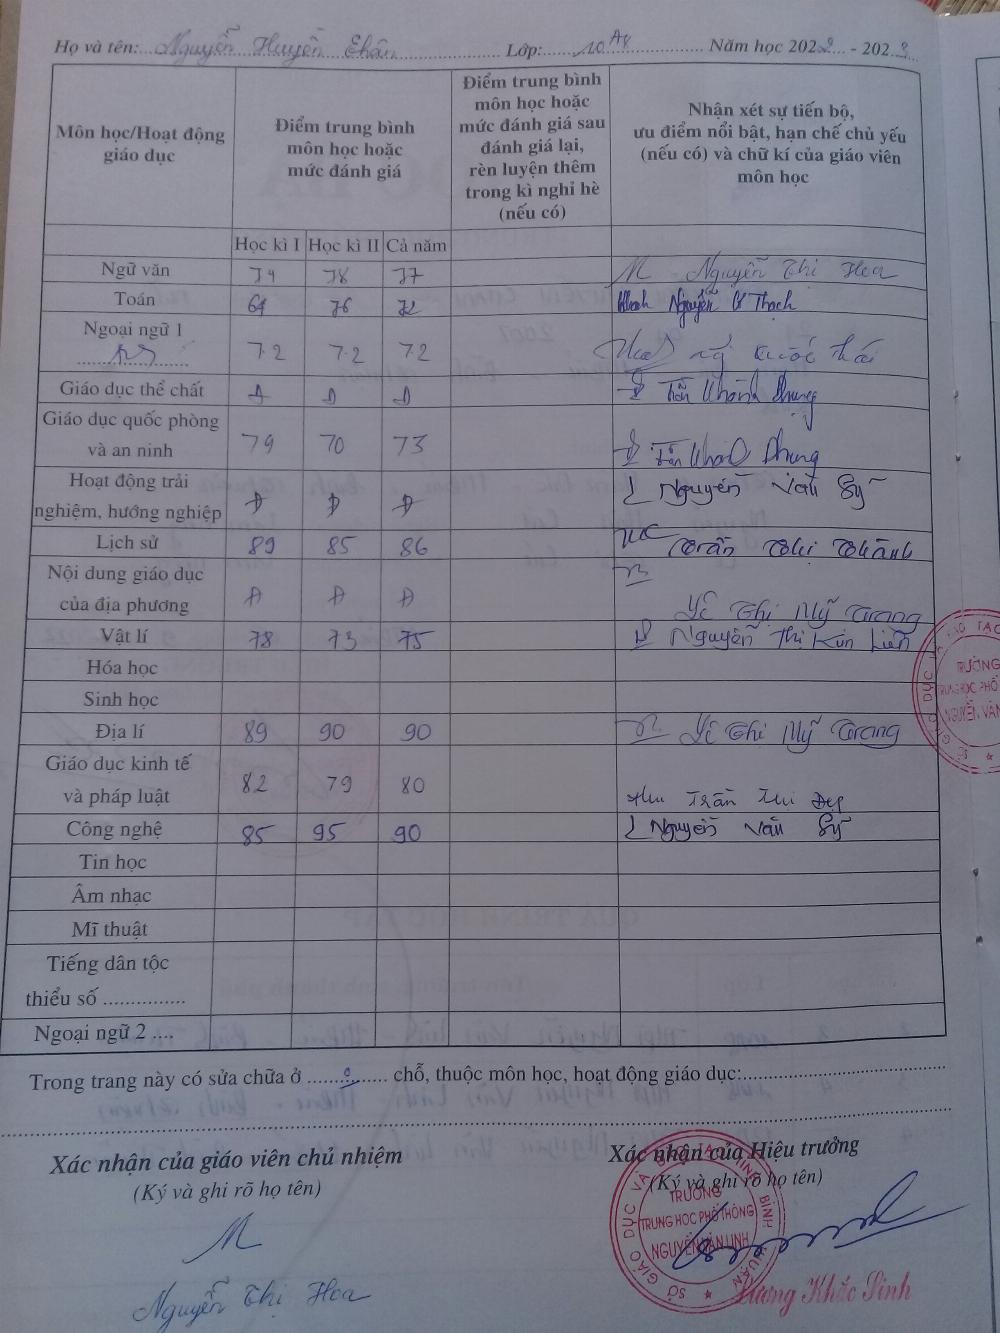 Họ và tên: Nguyễn Huyền Chân Lớp: 10A8 Năm học 2022 - 2023
Môn học/Hoạt động giáo dục
Điểm trung bình môn học hoặc mức đánh giá
Điểm trung bình môn học hoặc mức đánh giá sau đánh giá lại, rèn luyện thêm trong kì nghỉ hè (nếu có)
Nhận xét sự tiến bộ, ưu điểm nổi bật, hạn chế chủ yếu (nếu có) và chữ kí của giáo viên môn học
Học kì I Học kì II Cả năm
Ngữ văn 74 78 77 Nguyễn Thị Hoa
Toán 64 76 72 Nguyễn Thạch
Ngoại ngữ 1 7.2 7.2 7.2 Quốc Thái
Giáo dục thể chất Đ Đ Đ Trần Khánh Phung
Giáo dục quốc phòng và an ninh 79 70 73 Trần Phung
Hoạt động trải nghiệm, hướng nghiệp Đ Đ Đ Nguyễn Văn Sỹ
Lịch sử 89 85 86 Trần Thị Thành
Nội dung giáo dục của địa phương Đ Đ Đ Lê Thị Mỹ Trang
Vật lí 78 73 75 Nguyễn Thị Kim Liên
Hóa học
Sinh học
Địa lí 89 90 90 Lê Thị Mỹ Trang
Giáo dục kinh tế và pháp luật 82 79 80 Trần Thị Đẹp
Công nghệ 85 95 90 Nguyễn Văn Sỹ
Tin học
Âm nhạc
Mĩ thuật
Tiếng dân tộc thiểu số ...............
Ngoại ngữ 2 ....
Trong trang này có sửa chữa ở ...0... chỗ, thuộc môn học, hoạt động giáo dục:
Xác nhận của giáo viên chủ nhiệm
(Ký và ghi rõ họ tên)
Nguyễn Thị Hoa
Xác nhận của Hiệu trưởng
(Ký và ghi rõ họ tên)
TRƯỜNG
TRUNG HỌC PHỔ THÔNG
NGUYỄN VĂN LINH
Khắc Sinh